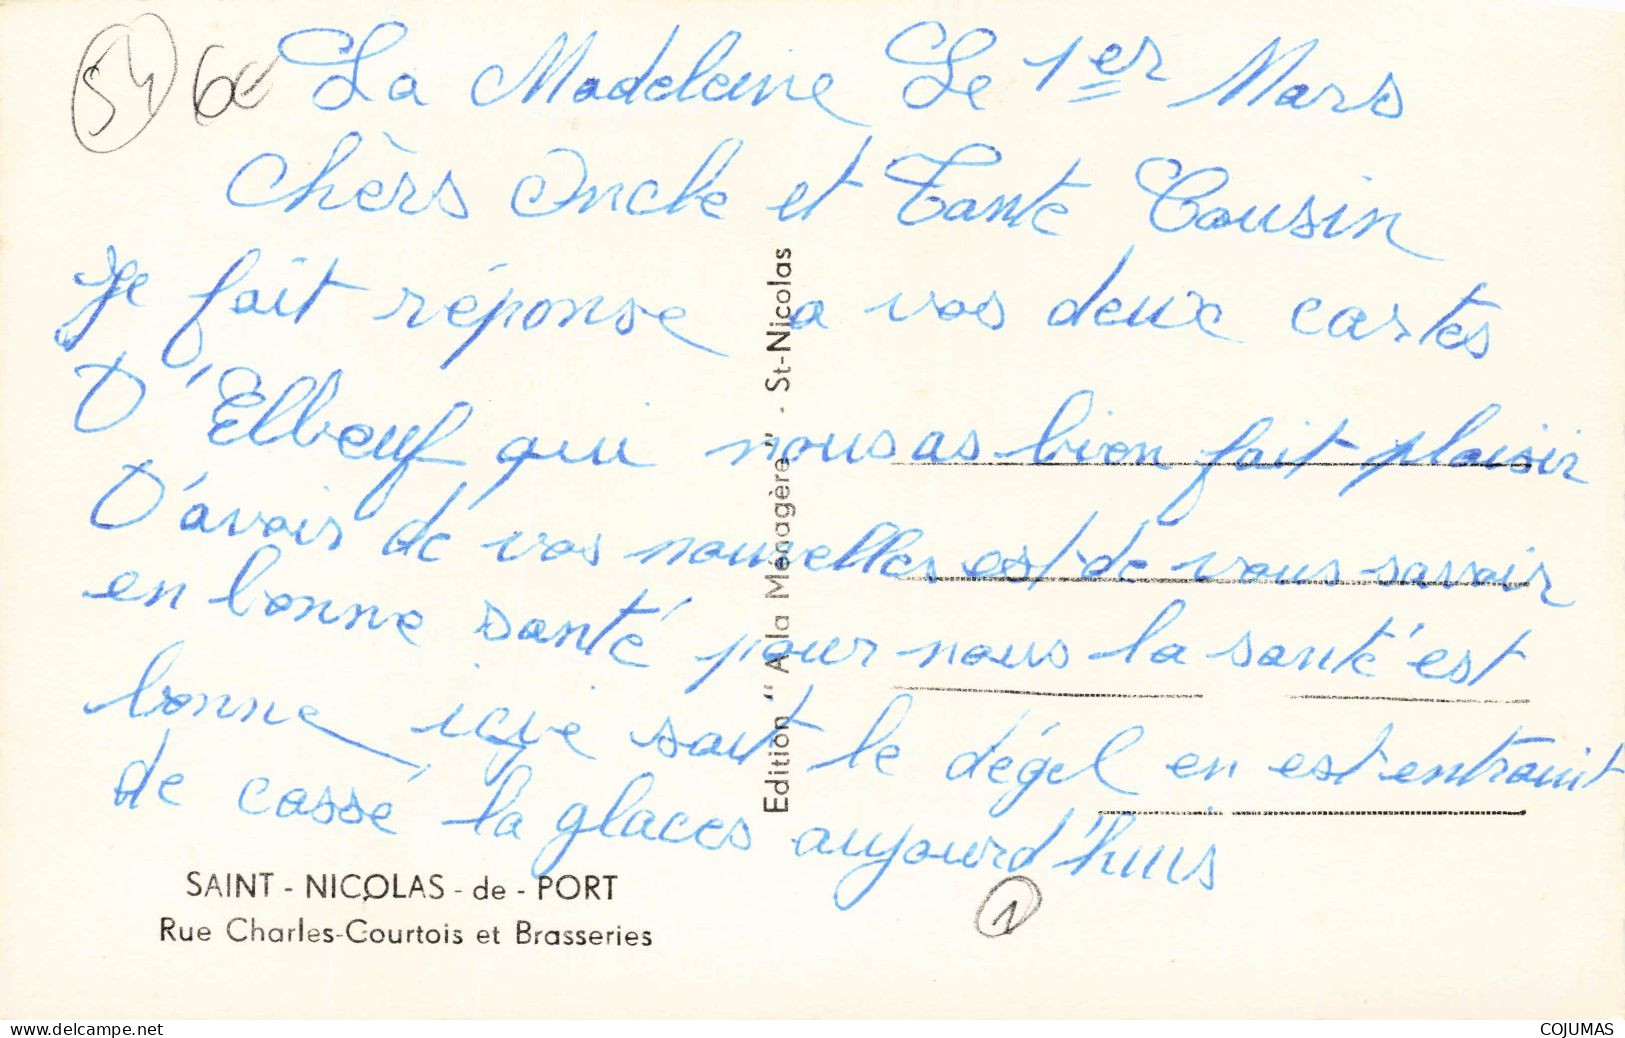 54 6€ La Madeleine Le 1er Mars
Chèrs Oncle et Tante Cousin
Je fait réponse a vos deux cartes
D'Elbeuf qui nous as bien fait plaisir
D'avoir de vos nouvelles est de vous savoir
en bonne santé pour nous la santé est
bonne içie sait le dégel en est entrouit
de cassé la glaces aujourd'huis
1
Edition "A la Ménagère" - St-Nicolas
SAINT - NICOLAS - de - PORT
Rue Charles-Courtois et Brasseries
www.delcampe.net
COJUMAS